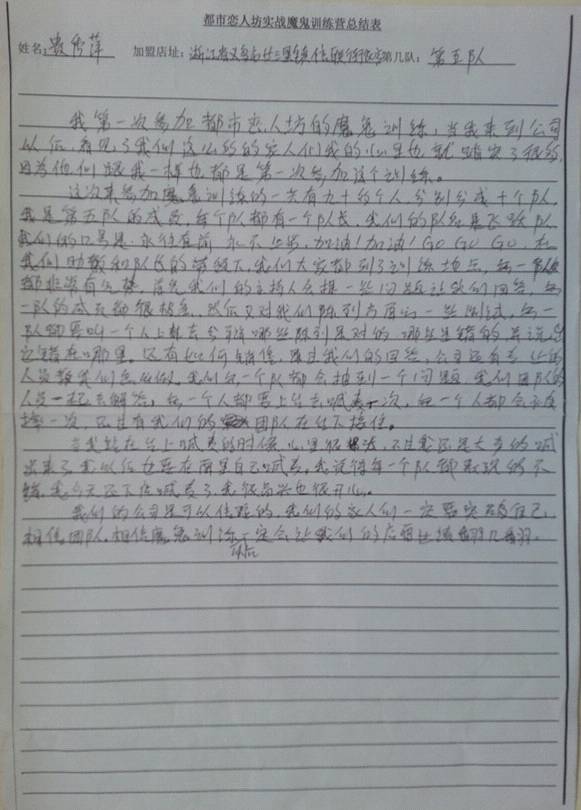 都市恋人坊实战魔鬼训练营总结表
姓名: 秀萍 加盟店址: 浙江省义乌市廿三里镇 第几队: 第五队
我第一次参加都市恋人坊的魔鬼训练,当我来到公司
以后,看见了我们这么多的家人们我的心里也就踏实了很多,
因为他们跟我一样也都是第一次参加这个训练。
这次来参加魔鬼训练的一共有九十多个人,分别分成十个队,
我是第五队的成员,每个队都有一个队长,我们的队名是飞跃队
我们的口号是:永往直前 永不止步,加油!加油!GO GO GO,在
我们助教和队长的带领下,我们大家都到了训练地点,每一队
都非常有,首先我们的主持人会提一些问题让我们回答,每
一队的成员都很积极,然后又对我们陈列方面的一些测试,每一
队都要叫一个人上去 哪些陈列是对的 哪些是错的 并说出
它错在哪里,还有如何,通过我们的回答,公司还有专业的
人员教我们怎么做,我们每一个队都会抽到一个问题,我们团队的
人员一起去解答,每一个人都要上台去喊麦一次,每一个人都会
一次,而且有我们的团队在台下接住。
当我站在台上喊麦的时候,心里很,不过我还是大声的喊
出来了,我以后也要在店里自己喊麦,我觉得每一个队都表现的不
错,我今天还下店喊麦了,我很高兴也很开心。
我们的公司是可以信赖的,我们的家人们一定要突破自己,
相信团队,相信魔鬼训练一定会让我们的店要业绩翻几翻。
以后